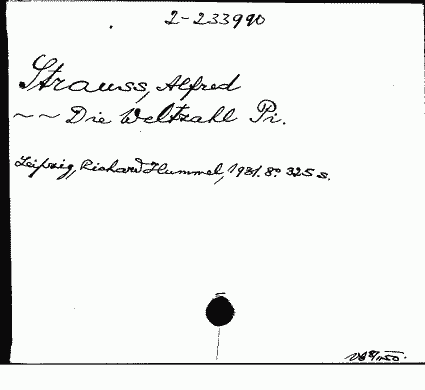 2-233990
Strauss, Alfred
~ ~ Die Weltzahl Pi.
Leipzig, Richard Hummel, 1931. 8° 325 S.